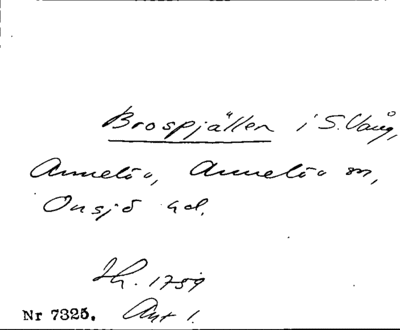 Brospjällen i S. Vång,
Annelöv, Annelövs sn,
Onsjö hd.
Lh. 1759
Nr 7325. Akt 1.